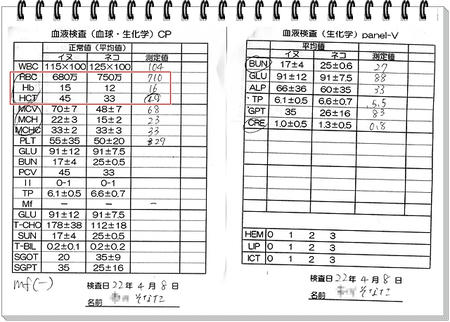 血液検査(血球・生化学)CP
正常値(平均値)
イヌ ネコ 測定値
WBC 115×100 125×100 104
RBC 680万 750万 710
Hb 15 12 16
HCT 45 33
MCV 70±7 48±7 68
MCH 22±3 15±2 23
MCHC 33±2 33±3 33
PLT 55±35 50±20 329
GLU 91±12 91±7.5
BUN 17±4 25±0.5
PCV 45 33
II 0-1 0-1
TP 6.1±0.5 6.6±0.7
Mf － －
GLU 91±12 91±7.5
T-CHO 178±38 112±18
SUN 17±4 25±0.5
T-BIL 0.2±0.1 0.2±0.2
SGOT 20 35±9
SGPT 35 25±16
mf(-)
検査日 22年 4月 8日
名前 そなた
血液検査(生化学)panel-V
平均値
イヌ ネコ 測定値
BUN 17±4 25±0.6 27
GLU 91±12 91±7.5 88
ALP 66±36 60±35 33
TP 6.1±0.5 6.6±0.7 5.5
GPT 35 26±16 83
CRE 1.0±0.5 1.3±0.5 0.8
HEM 0 1 2 3
LIP 0 1 2 3
ICT 0 1 2 3
検査日 22年 4月 8日
名前 そなた